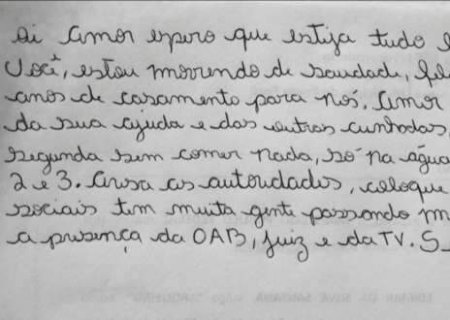 oi Amor espero que estija tudo
Você, estou morrendo de saudade,
anos de casamento para nós. Amor
da sua ajuda e das outras cunhadas,
segunda sem comer nada, só na água
2 e 3. Avisa as autoridades, coloque
sociais tem muita gente passando m
a presença da OAB, juiz e da TV. S